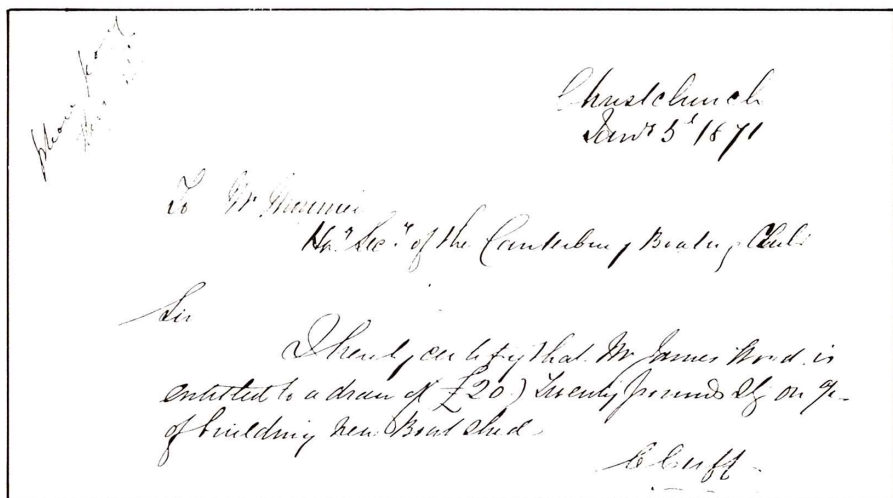 Christchurch
Jany 5th 1871
To Mr
Hony Secy of the Canterbury Boating Club
Sir
I hereby certify that Mr James Wood is
entitled to a draw of £20) Twenty pounds Stg on a/c
of building new Boat shed
C Cuff